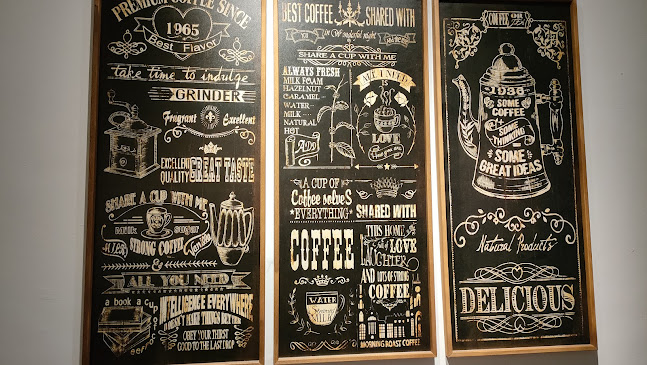 PREMIUM COFFEE SINCE
1965
Best Flavor
take time to indulge
GRINDER
Fragrant Excellent
EXCELLENT
QUALITY
GREAT TASTE
SHARE A CUP WITH ME
STRONG COFFEE
&
ALL YOU NEED
a book a cup
INTELLIGENCE EVERYWHERE
THINGS BETTER
OBEY YOUR THIRST
GOOD TO THE LAST DROP
BEST COFFEE SHARED WITH
in Wonderful night
SHARE A CUP WITH ME
ALWAYS FRESH
MILK FOAM
HAZELNUT
CARAMEL
WATER
MILK
NATURAL
HOT
ALL I NEED
LOVE
A CUP OF
Coffee solveS
*EVERYTHING*
SHARED WITH
COFFEE
THIS HOME
LOVE
LAUGHTER
AND LOTS OF STRONG
COFFEE
WATER
MILK
MORNING ROAST COFFEE
COFFEE OR
1936
SOME
COFFEE
SOME
THINKING
SOME
GREAT IDEAS
Natural Products
DELICIOUS